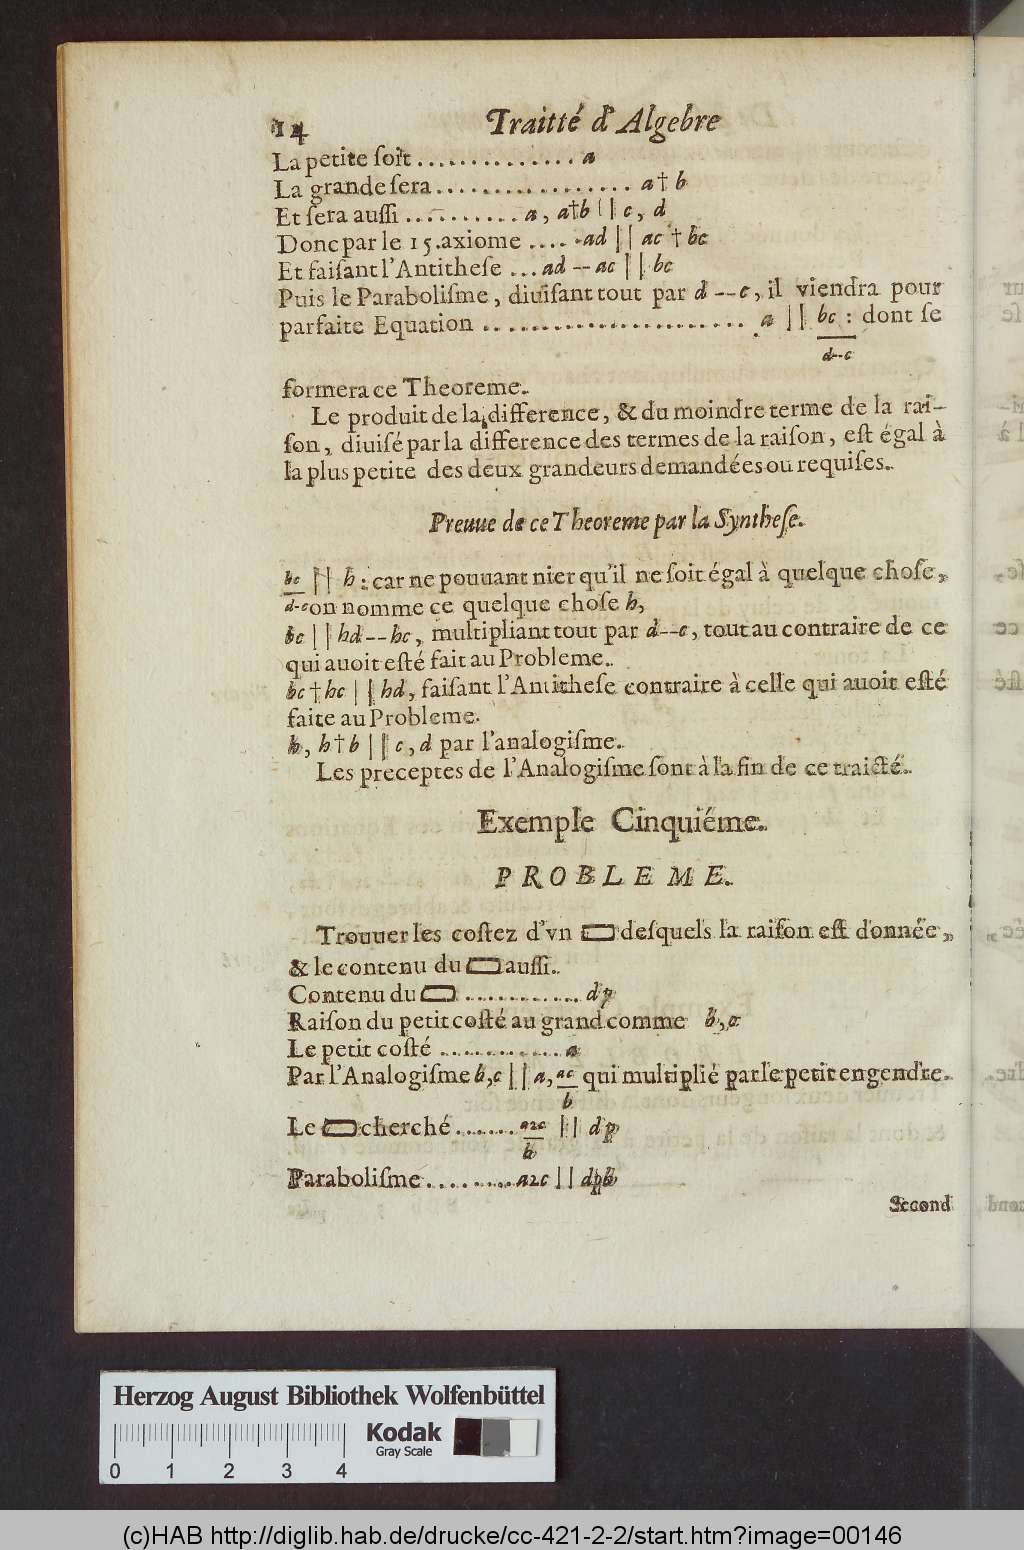 14 Traitté d'Algebre
La petite ſoit ............... a
La grande ſera.................. a † b
Et ſera auſſi .......... a, a†b || c, d
Donc par le 15. axiome .... ad || ac † bc
Et faiſant l'Antitheſe ... ad -- ac || bc
Puis le Paraboliſme, diuiſant tout par d -- c, il viendra pour
parfaite Equation ........................ a || bc : dont ſe
d--c
formera ce Theoreme.
Le produit de la difference, & du moindre terme de la rai-
ſon, diuiſé par la difference des termes de la raiſon, eſt égal à
la plus petite des deux grandeurs demandées ou requiſes.
Preuue de ce Theoreme par la Syntheſe.
bc || h : car ne pouuant nier qu'il ne ſoit égal à quelque choſe,
d-c on nomme ce quelque choſe h,
bc || hd -- hc, multipliant tout par d--c, tout au contraire de ce
qui auoit eſté fait au Probleme.
bc † hc || hd, faiſant l'Antitheſe contraire à celle qui auoit eſté
faite au Probleme.
h, h † b || c, d par l'analogiſme.
Les preceptes de l'Analogiſme ſont à la fin de ce traicté.
Exemple Cinquiéme.
PROBLEME.
Trouuer les coſtez d'vn ▭ deſquels la raiſon eſt donnée,
& le contenu du ▭ auſſi.
Contenu du ▭ ............ dp
Raiſon du petit coſté au grand comme b, c
Le petit coſté ............ a
Par l'Analogiſme b, c || a, ac qui multiplié par le petit engendre.
b
Le ▭ cherché ....... a2c || dp
b
Paraboliſme.......... a2c || dpb
Second
Herzog August Bibliothek Wolfenbüttel
Kodak
Gray Scale
0 1 2 3 4
(c)HAB http://diglib.hab.de/drucke/cc-421-2-2/start.htm?image=00146